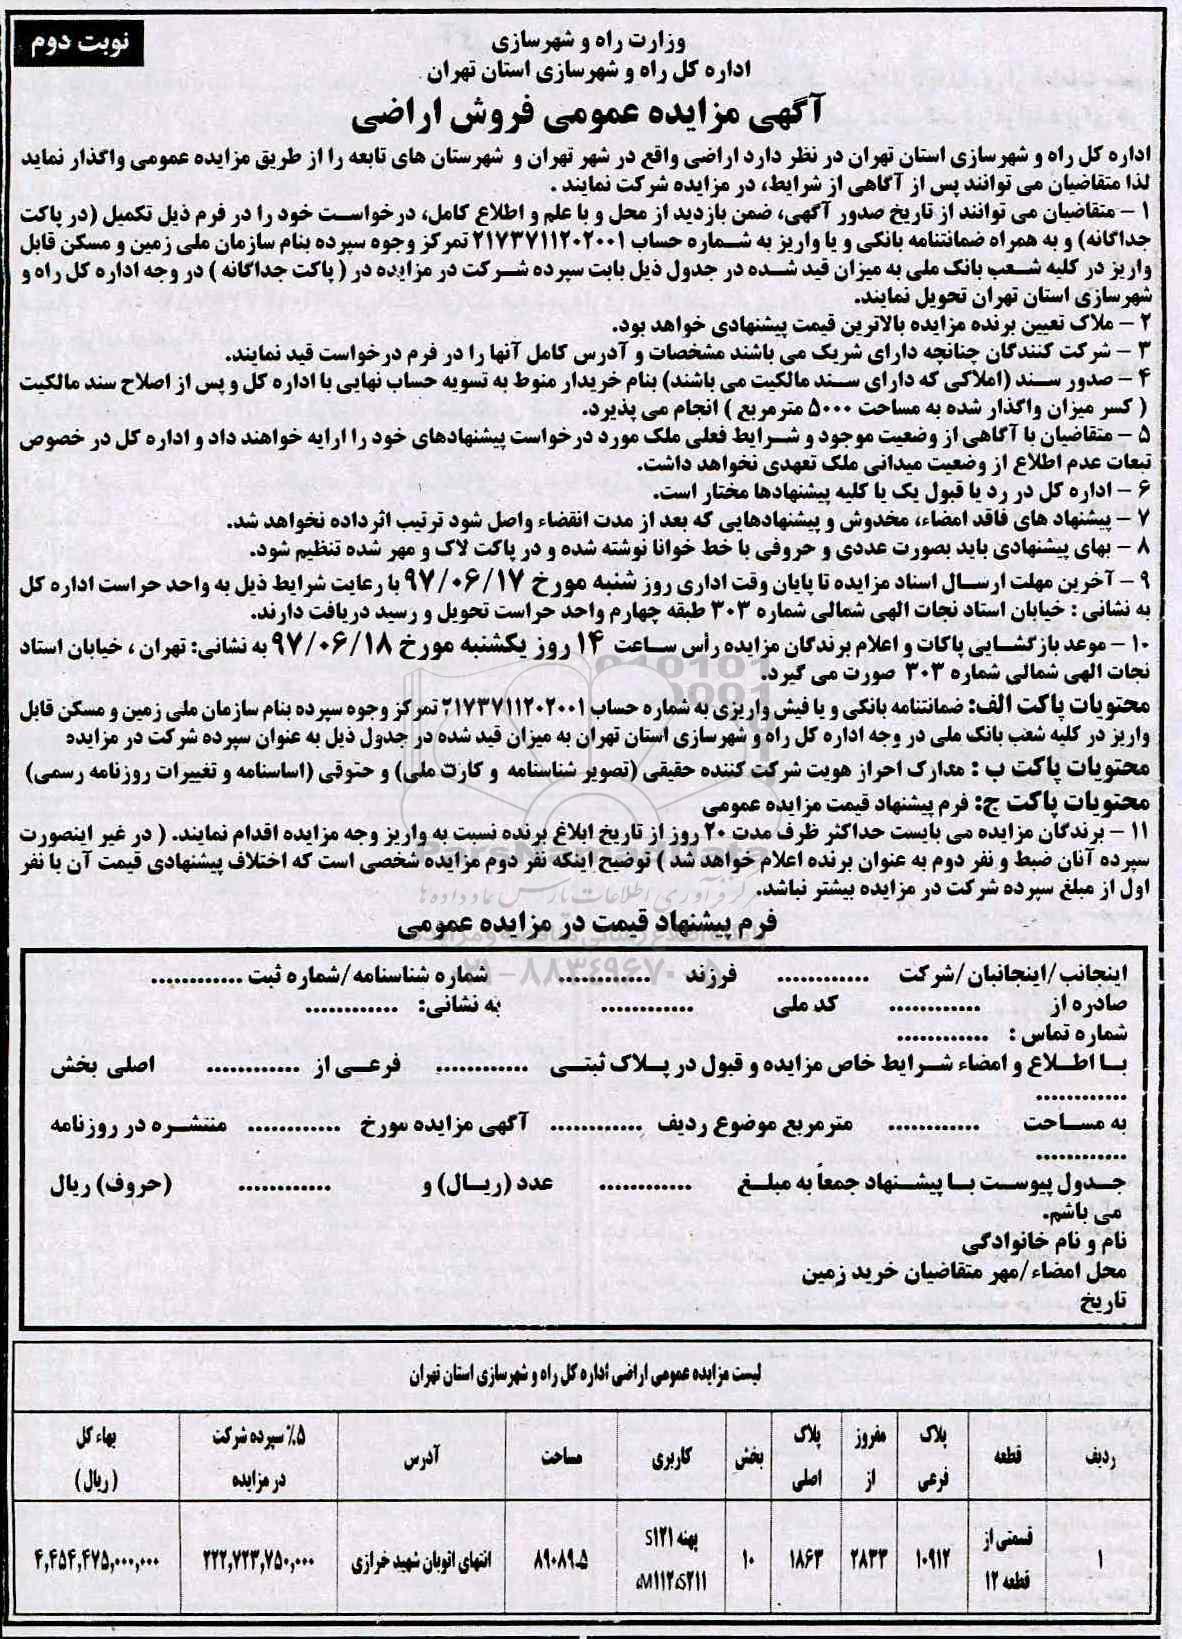 نوبت دوم
وزارت راه و شهرسازی
اداره کل راه و شهرسازی استان تهران
آگهی مزایده عمومی فروش اراضی
اداره کل راه و شهرسازی استان تهران در نظر دارد اراضی واقع در شهر تهران و شهرستان های تابعه را از طریق مزایده عمومی واگذار نماید
لذا متقاضیان می توانند پس از آگاهی از شرایط، در مزایده شرکت نمایند .
۱ – متقاضیان می توانند از تاریخ صدور آگهی، ضمن بازدید از محل و با علم و اطلاع کامل، درخواست خود را در فرم ذیل تکمیل (در پاکت
جداگانه) و به همراه ضمانتنامه بانکی و یا واریز به شماره حساب ۲۱۷۳۷۱۱۲۰۲۰۰۱ تمرکز وجوه سپرده بنام سازمان ملی زمین و مسکن قابل
واریز در کلیه شعب بانک ملی به میزان قید شده در جدول ذیل بابت سپرده شرکت در مزایده در ( پاکت جداگانه ) در وجه اداره کل راه و
شهرسازی استان تهران تحویل نمایند.
۲ – ملاک تعیین برنده مزایده بالاترین قیمت پیشنهادی خواهد بود.
۳ – شرکت کنندگان چنانچه دارای شریک می باشند مشخصات و آدرس کامل آنها را در فرم درخواست قید نمایند.
۴ – صدور سند (املاکی که دارای سند مالکیت می باشند) بنام خریدار منوط به تسویه حساب نهایی با اداره کل و پس از اصلاح سند مالکیت
( کسر میزان واگذار شده به مساحت ۵۰۰۰ مترمربع ) انجام می پذیرد.
۵ – متقاضیان با آگاهی از وضعیت موجود و شرایط فعلی ملک مورد درخواست پیشنهادهای خود را ارایه خواهند داد و اداره کل در خصوص
تبعات عدم اطلاع از وضعیت میدانی ملک تعهدی نخواهد داشت.
۶ – اداره کل در رد یا قبول یک یا کلیه پیشنهادها مختار است.
۷ – پیشنهاد های فاقد امضاء، مخدوش و پیشنهادهایی که بعد از مدت انقضاء واصل شود ترتیب اثرداده نخواهد شد.
۸ – بهای پیشنهادی باید بصورت عددی و حروفی با خط خوانا نوشته شده و در پاکت لاک و مهر شده تنظیم شود.
۹ – آخرین مهلت ارسال اسناد مزایده تا پایان وقت اداری روز شنبه مورخ ۹۷/۰۶/۱۷ با رعایت شرایط ذیل به واحد حراست اداره کل
به نشانی : خیابان استاد نجات الهی شمالی شماره ۳۰۳ طبقه چهارم واحد حراست تحویل و رسید دریافت دارند.
۱۰ – موعد بازگشایی پاکات و اعلام برندگان مزایده رأس ساعت ۱۴ روز یکشنبه مورخ ۹۷/۰۶/۱۸ به نشانی: تهران ، خیابان استاد
نجات الهی شمالی شماره ۳۰۳ صورت می گیرد.
محتویات پاکت الف: ضمانتنامه بانکی و یا فیش واریزی به شماره حساب ۲۱۷۳۷۱۱۲۰۲۰۰۱ تمرکز وجوه سپرده بنام سازمان ملی زمین و مسکن قابل
واریز در کلیه شعب بانک ملی در وجه اداره کل راه و شهرسازی استان تهران به میزان قید شده در جدول ذیل به عنوان سپرده شرکت در مزایده
محتویات پاکت ب : مدارک احراز هویت شرکت کننده حقیقی (تصویر شناسنامه و کارت ملی) و حقوقی (اساسنامه و تغییرات روزنامه رسمی)
محتویات پاکت ج: فرم پیشنهاد قیمت مزایده عمومی
۱۱ – برندگان مزایده می بایست حداکثر ظرف مدت ۲۰ روز از تاریخ ابلاغ برنده نسبت به واریز وجه مزایده اقدام نمایند. ( در غیر اینصورت
سپرده آنان ضبط و نفر دوم به عنوان برنده اعلام خواهد شد ) توضیح اینکه نفر دوم مزایده شخصی است که اختلاف پیشنهادی قیمت آن با نفر
اول از مبلغ سپرده شرکت در مزایده بیشتر نباشد.
مرکز فرآوری اطلاعات پارس نماد داده ها
فرم پیشنهاد قیمت در مزایده عمومی
۰۲۱-۸۸۳۴۹۶۷۰-۵
اینجانب/اینجانبان/شرکت ............ فرزند ............ شماره شناسنامه/شماره ثبت ............
صادره از ............ کد ملی ............ به نشانی: ............
شماره تماس : ............
با اطلاع و امضاء شرایط خاص مزایده و قبول در پلاک ثبتی ............ فرعی از ............ اصلی بخش
............
به مساحت ............ مترمربع موضوع ردیف ............ آگهی مزایده مورخ ............ منتشره در روزنامه
............
جدول پیوست با پیشنهاد جمعاً به مبلغ ............ عدد (ریال) و ............ (حروف) ریال
می باشم.
نام و نام خانوادگی
محل امضاء/مهر متقاضیان خرید زمین
تاریخ
لیست مزایده عمومی اراضی اداره کل راه و شهرسازی استان تهران
ردیف قطعه پلاک فرعی مفروز از پلاک اصلی بخش کاربری مساحت آدرس ۵٪ سپرده شرکت در مزایده بهاء کل (ریال)
۱ قسمتی از قطعه ۱۲ ۱۰۹۱۲ ۲۸۳۳ ۱۸۶۳ ۱۰ پهنه S۱۲۱ ،M۱۱۲،S۲۱۱ ۸۹۰۸۹.۵ انتهای اتوبان شهید خرازی ۲۲۲,۷۲۳,۷۵۰,۰۰۰ ۴,۴۵۴,۴۷۵,۰۰۰,۰۰۰